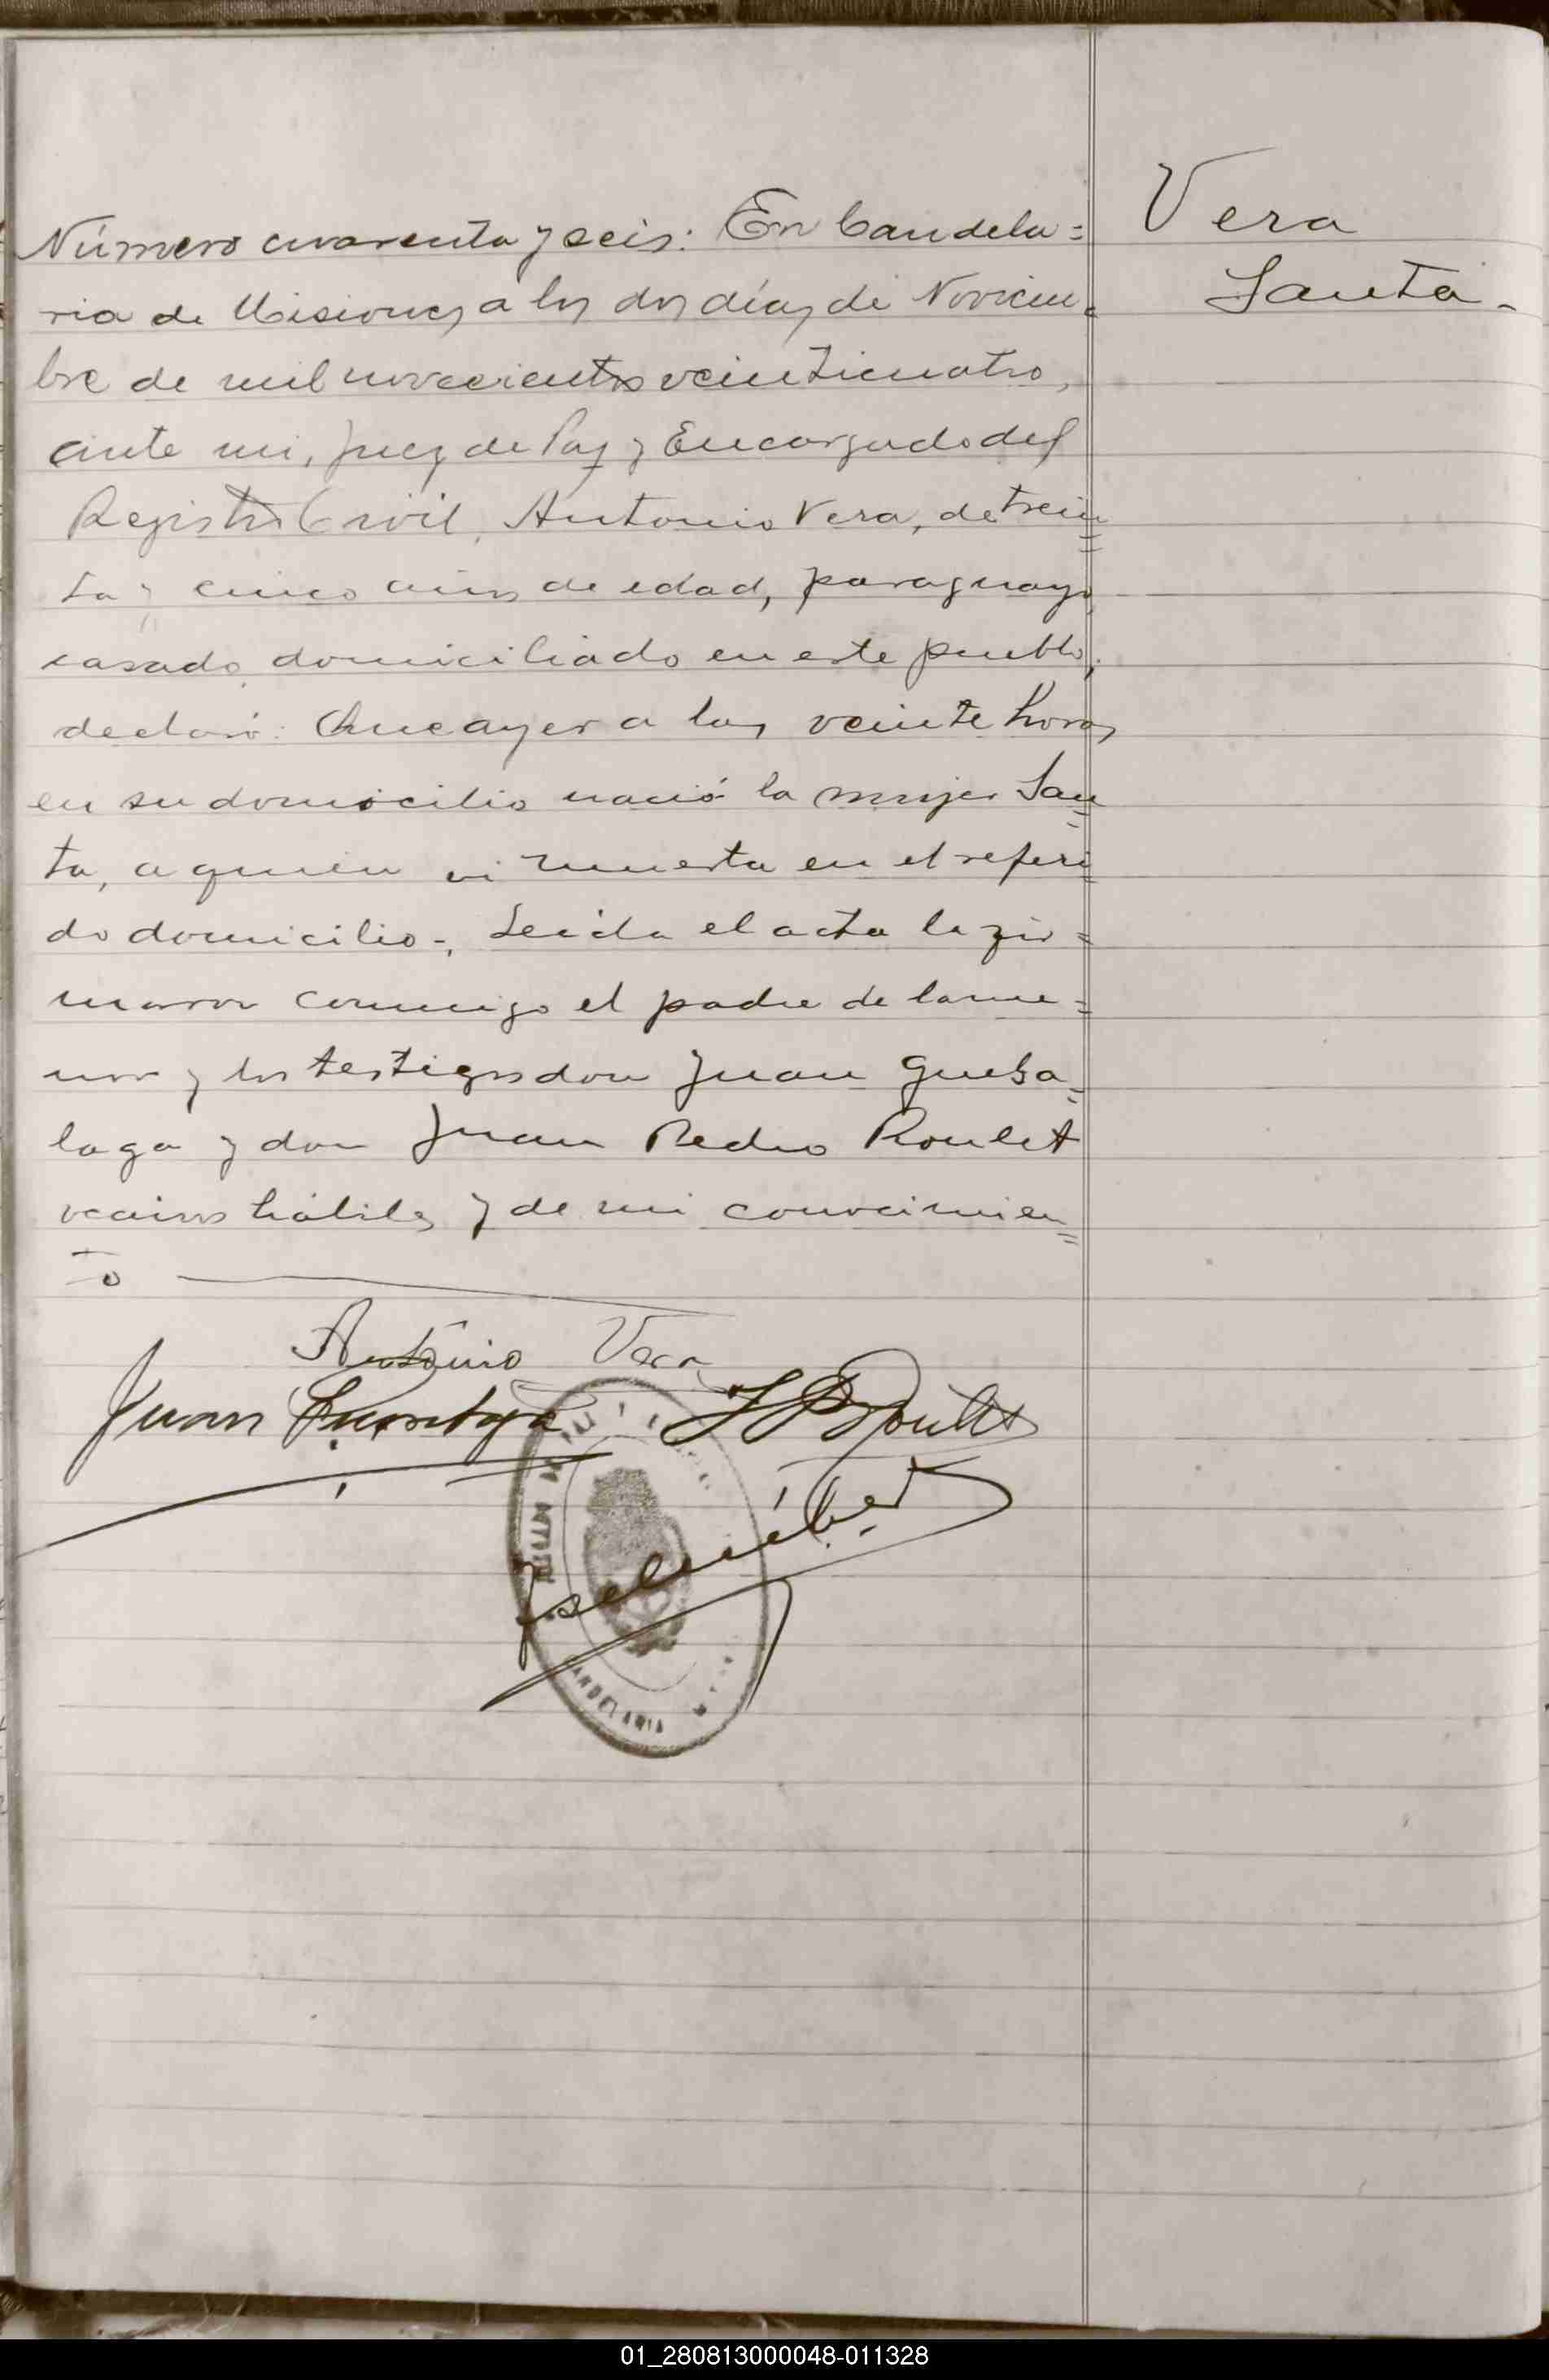 Vera
Santa.
Número cuarenta y seis: En Candela=
ria de Misiones a los dos días de Noviem=
bre de mil novecientos veinticuatro,
ante mi, Juez de Paz y Encargado del
Registro Civil, Antonio Vera, de trein=
ta y cinco años de edad, paraguayo,
casado, domiciliado en este pueblo,
declaró: Que ayer a las veinte horas
en su domicilio nació la mujer San=
ta, a quien vi muerta en el referi=
do domicilio-. Leída el acta la fir=
maron conmigo el padre de la me=
nor y los testigos don Juan
y don Juan Pedro Roulet
vecinos hábiles y de mi conocimien=
to
Antonio Vera
Juan
J P Roulet
CANDELARIA
01_280813000048-011328